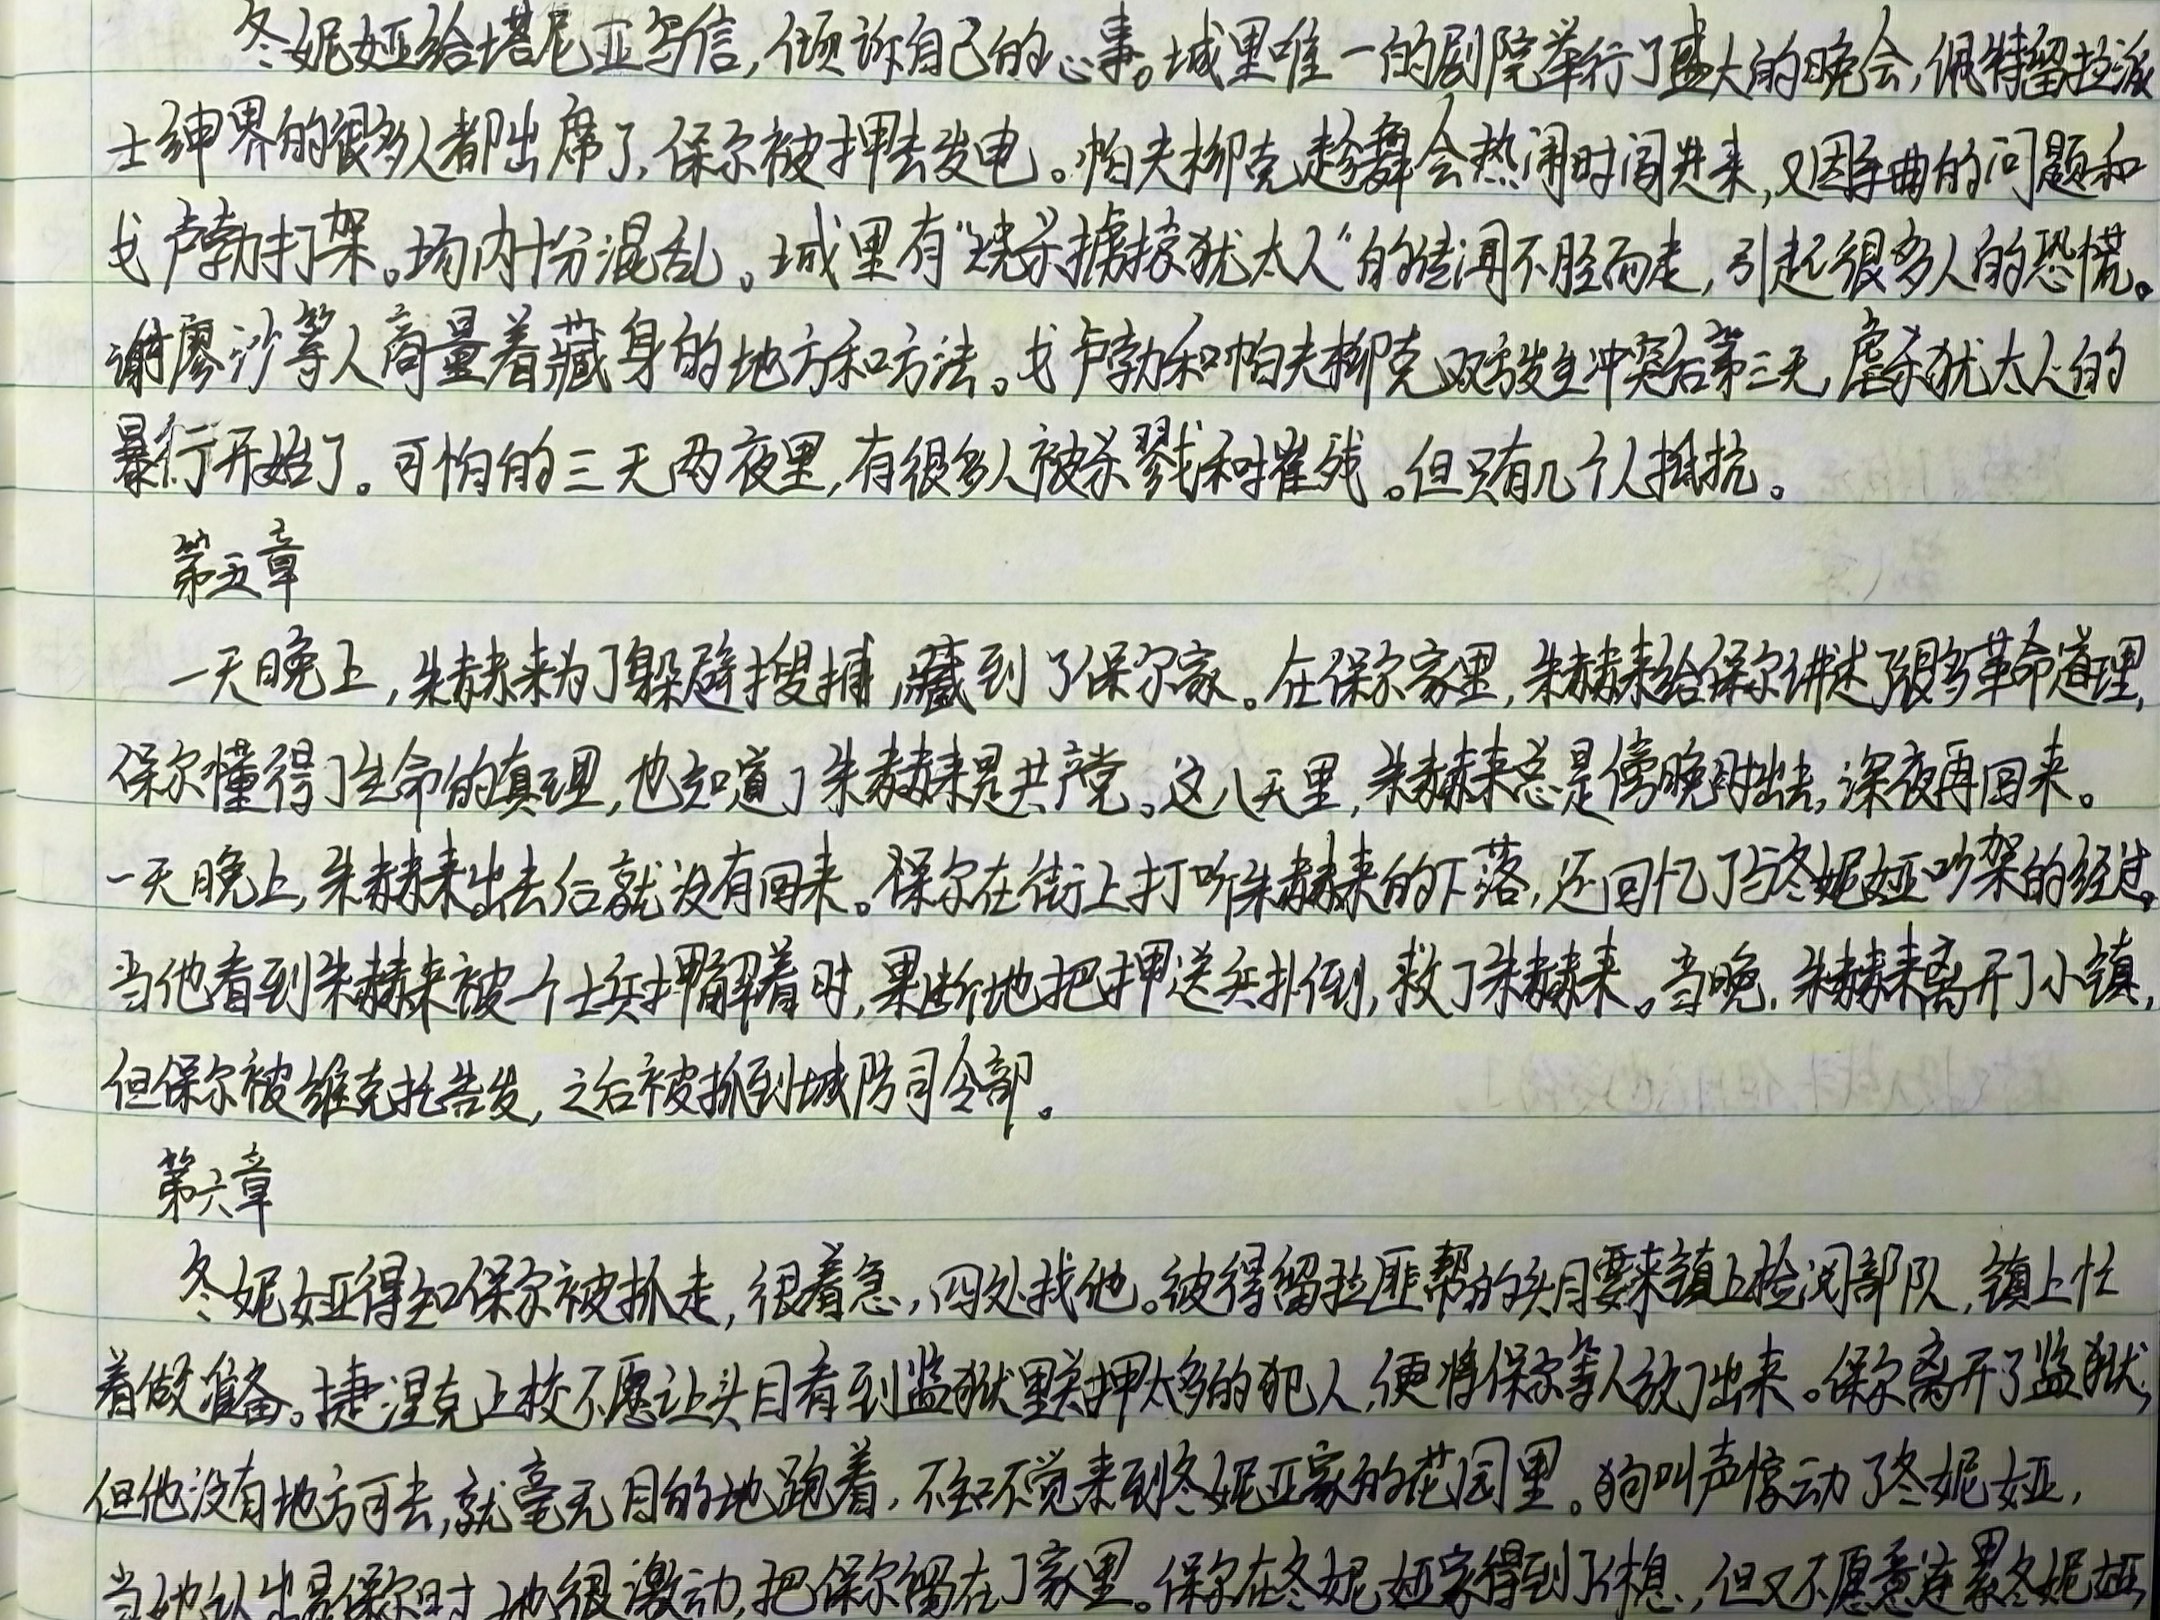 冬妮娅给塔尼亚写信,倾诉自己的心事。城里唯一的剧院举行了盛大的晚会,佩特留拉派
士绅界的很多人都出席了,保尔被押去发电。帕夫柳克趁舞会热闹时闯进来,又因弄曲的问题和
戈卢勃打架。场内十分混乱。城里有“烧杀掳掠犹太人”的传闻不胫而走,引起很多人的恐慌。
谢廖沙等人商量着藏身的地方和方法。戈卢勃和帕夫柳克双方发生冲突后第三天,虐杀犹太人的
暴行开始了。可怕的三天两夜里,有很多人被杀戮和摧残。但只有几个人抵抗。
第五章
一天晚上,朱赫来为了躲避搜捕,藏到了保尔家。在保尔家里,朱赫来给保尔讲述了很多革命道理,
保尔懂得了生命的真理,也知道了朱赫来是共产党。这八天里,朱赫来总是傍晚时出去,深夜再回来。
一天晚上,朱赫来出去后就没有回来。保尔在街上打听朱赫来的下落,还回忆了与冬妮娅吵架的经过。
当他看到朱赫来被一个士兵押解着时,果断地把押送兵扑倒,救了朱赫来。当晚,朱赫来离开了小镇,
但保尔被维克托告发,之后被抓到城防司令部。
第六章
冬妮娅得知保尔被抓走,很着急,四处找他。彼得留拉匪帮的头目要来镇上检阅部队,镇上忙
着做准备。捷涅克上校不愿让头目看到监狱里关押太多的犯人,便将保尔等人放了出来。保尔离开了监狱,
但他没有地方可去,就毫无目的地跑着,不知不觉来到冬妮亚家的花园里。狗叫声惊动了冬妮娅,
当她认出是保尔时,她很激动,把保尔留在了家里。保尔在冬妮娅家得到了休息,但又不愿意连累冬妮娅,